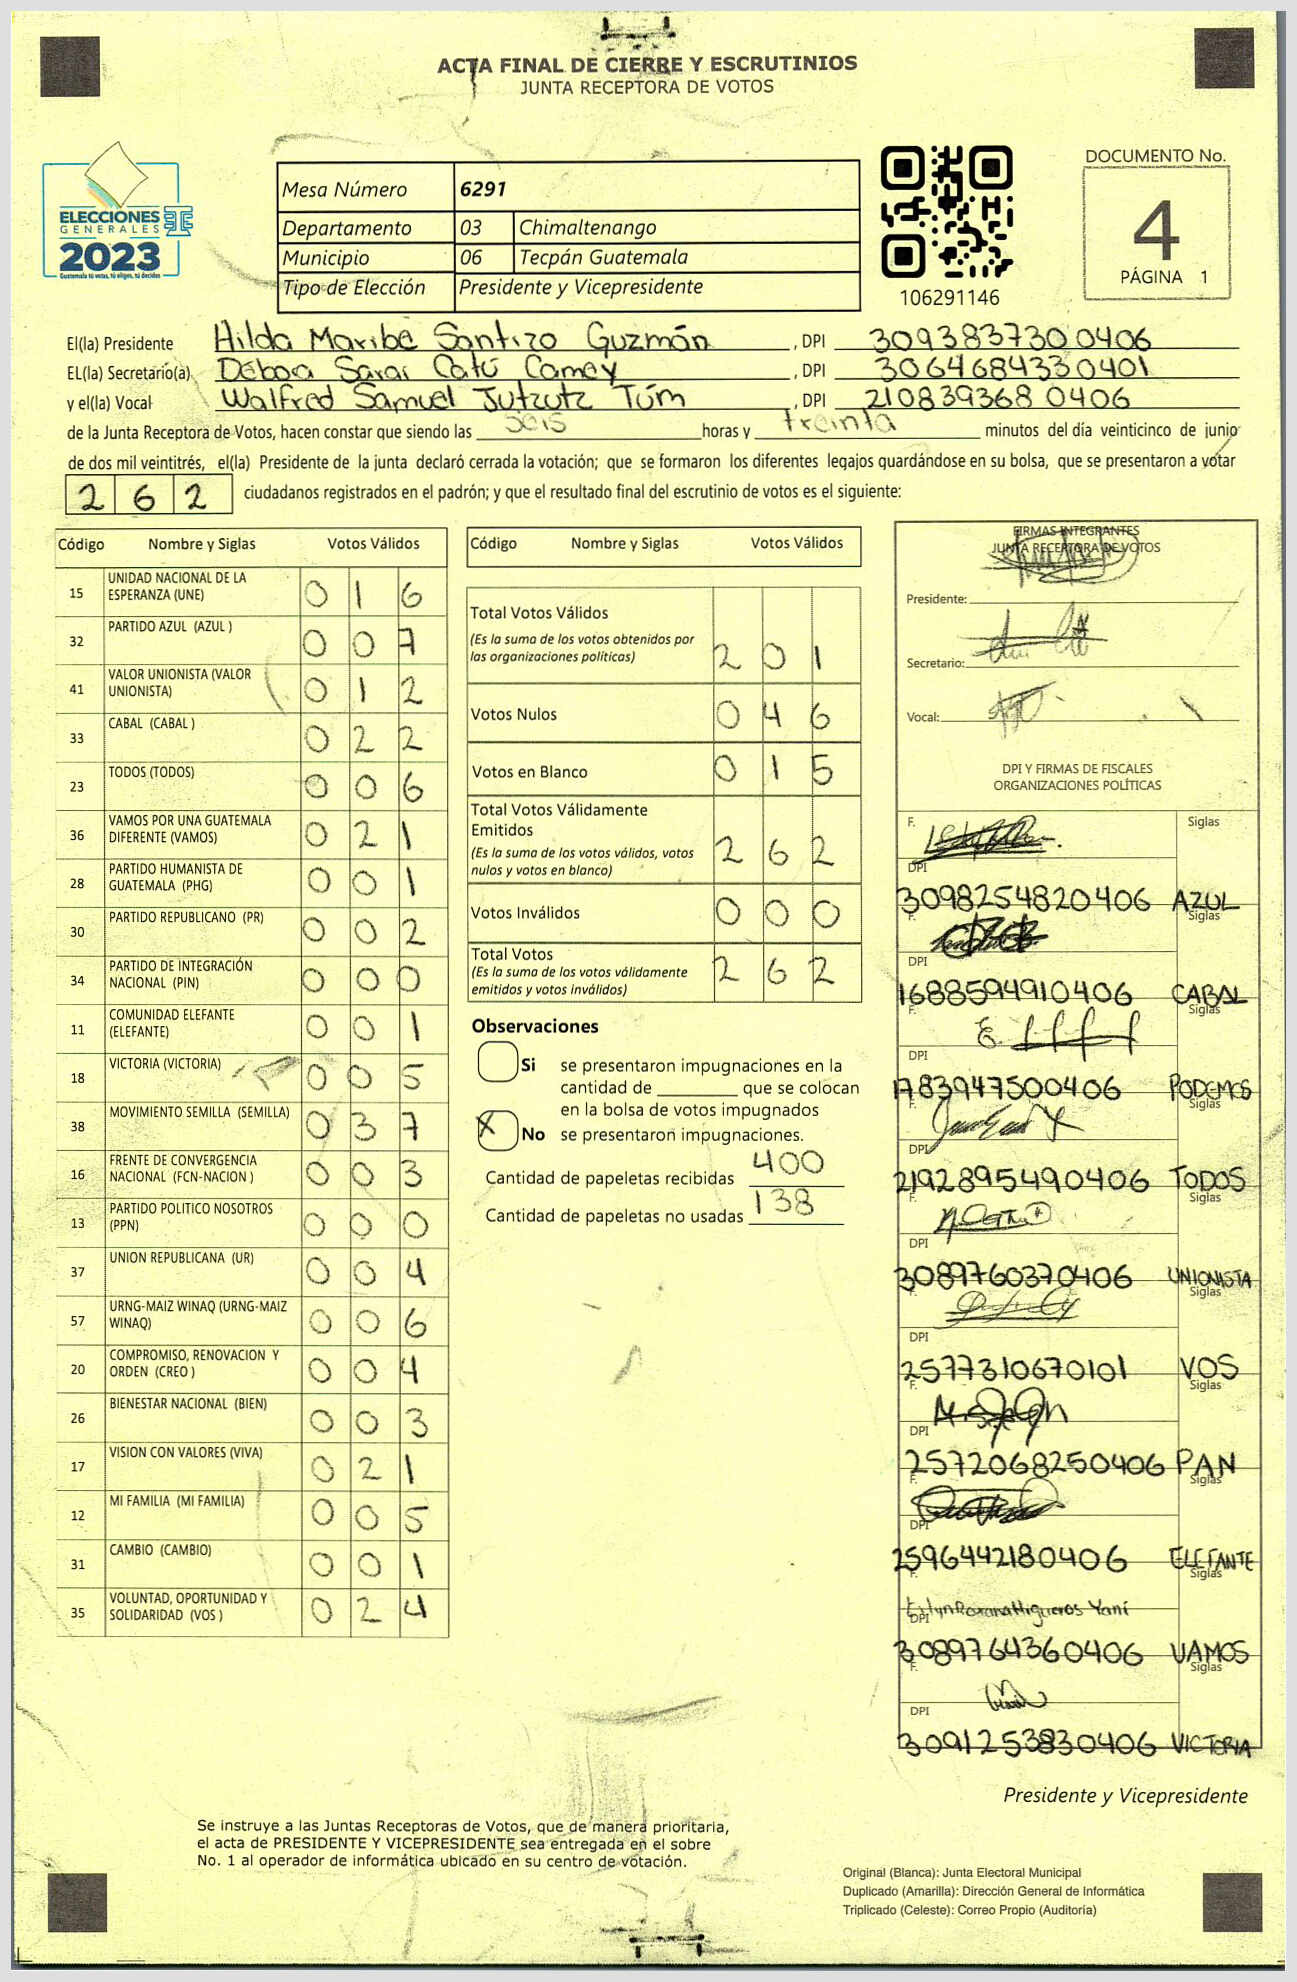 ACTA FINAL DE CIERRE Y ESCRUTINIOS
JUNTA RECEPTORA DE VOTOS
ELECCIONES
GENERALES
2023
Guatemala tú votas, tú eliges, tú decides
Mesa Número 6291
Departamento 03 Chimaltenango
Municipio 06 Tecpán Guatemala
Tipo de Elección Presidente y Vicepresidente
106291146
DOCUMENTO No.
4
PÁGINA 1
El(la) Presidente Hilda Maribe Santizo Guzmán, DPI 3093837300406
EL(la) Secretario(a) Débora Sarai Catú Camey, DPI 3064684330401
y el(la) Vocal Walfred Samuel Jutzutz Túm, DPI 2108393680406
de la Junta Receptora de Votos, hacen constar que siendo las seis horas y treinta minutos del día veinticinco de junio
de dos mil veintitrés, el(la) Presidente de la junta declaró cerrada la votación; que se formaron los diferentes legajos guardándose en su bolsa, que se presentaron a votar
262 ciudadanos registrados en el padrón; y que el resultado final del escrutinio de votos es el siguiente:
Código Nombre y Siglas Votos Válidos
15 UNIDAD NACIONAL DE LA ESPERANZA (UNE) 0 1 6
32 PARTIDO AZUL (AZUL ) 0 0 7
41 VALOR UNIONISTA (VALOR UNIONISTA) 0 1 2
33 CABAL (CABAL ) 0 2 2
23 TODOS (TODOS) 0 0 6
36 VAMOS POR UNA GUATEMALA DIFERENTE (VAMOS) 0 2 1
28 PARTIDO HUMANISTA DE GUATEMALA (PHG) 0 0 1
30 PARTIDO REPUBLICANO (PR) 0 0 2
34 PARTIDO DE INTEGRACIÓN NACIONAL (PIN) 0 0 0
11 COMUNIDAD ELEFANTE (ELEFANTE) 0 0 1
18 VICTORIA (VICTORIA) 0 0 5
38 MOVIMIENTO SEMILLA (SEMILLA) 0 3 7
16 FRENTE DE CONVERGENCIA NACIONAL (FCN-NACION ) 0 0 3
13 PARTIDO POLITICO NOSOTROS (PPN) 0 0 0
37 UNION REPUBLICANA (UR) 0 0 4
57 URNG-MAIZ WINAQ (URNG-MAIZ WINAQ) 0 0 6
20 COMPROMISO, RENOVACION Y ORDEN (CREO ) 0 0 4
26 BIENESTAR NACIONAL (BIEN) 0 0 3
17 VISION CON VALORES (VIVA) 0 2 1
12 MI FAMILIA (MI FAMILIA) 0 0 5
31 CAMBIO (CAMBIO) 0 0 1
35 VOLUNTAD, OPORTUNIDAD Y SOLIDARIDAD (VOS ) 0 2 4
Código Nombre y Siglas Votos Válidos
Total Votos Válidos
(Es la suma de los votos obtenidos por
las organizaciones políticas) 2 0 1
Votos Nulos 0 4 6
Votos en Blanco 0 1 5
Total Votos Válidamente
Emitidos
(Es la suma de los votos válidos, votos
nulos y votos en blanco) 2 6 2
Votos Inválidos 0 0 0
Total Votos
(Es la suma de los votos válidamente
emitidos y votos inválidos) 2 6 2
Observaciones
Si se presentaron impugnaciones en la
cantidad de ________ que se colocan
en la bolsa de votos impugnados
X No se presentaron impugnaciones.
Cantidad de papeletas recibidas 400
Cantidad de papeletas no usadas 138
FIRMAS INTEGRANTES
JUNTA RECEPTORA DE VOTOS
Presidente:
Secretario:
Vocal:
DPI Y FIRMAS DE FISCALES
ORGANIZACIONES POLÍTICAS
F. Siglas
DPI
3098254820406 AZUL
F. Siglas
DPI
1688594910406 CABAL
F. Siglas
DPI
1783947500406 PODEMOS
F. Siglas
DPI
2192895490406 TODOS
F. Siglas
DPI
3089760370406 UNIONISTA
F. Siglas
DPI
2577310670101 VOS
F. Siglas
DPI
2572068250406 PAN
F. Siglas
DPI
2596442180406 ELEFANTE
F. Siglas
DPI
3089764360406 VAMOS
F. Siglas
DPI
3091253830406 VICTORIA
Presidente y Vicepresidente
Se instruye a las Juntas Receptoras de Votos, que de manera prioritaria,
el acta de PRESIDENTE Y VICEPRESIDENTE sea entregada en el sobre
No. 1 al operador de informática ubicado en su centro de votación.
Original (Blanca): Junta Electoral Municipal
Duplicado (Amarilla): Dirección General de Informática
Triplicado (Celeste): Correo Propio (Auditoría)